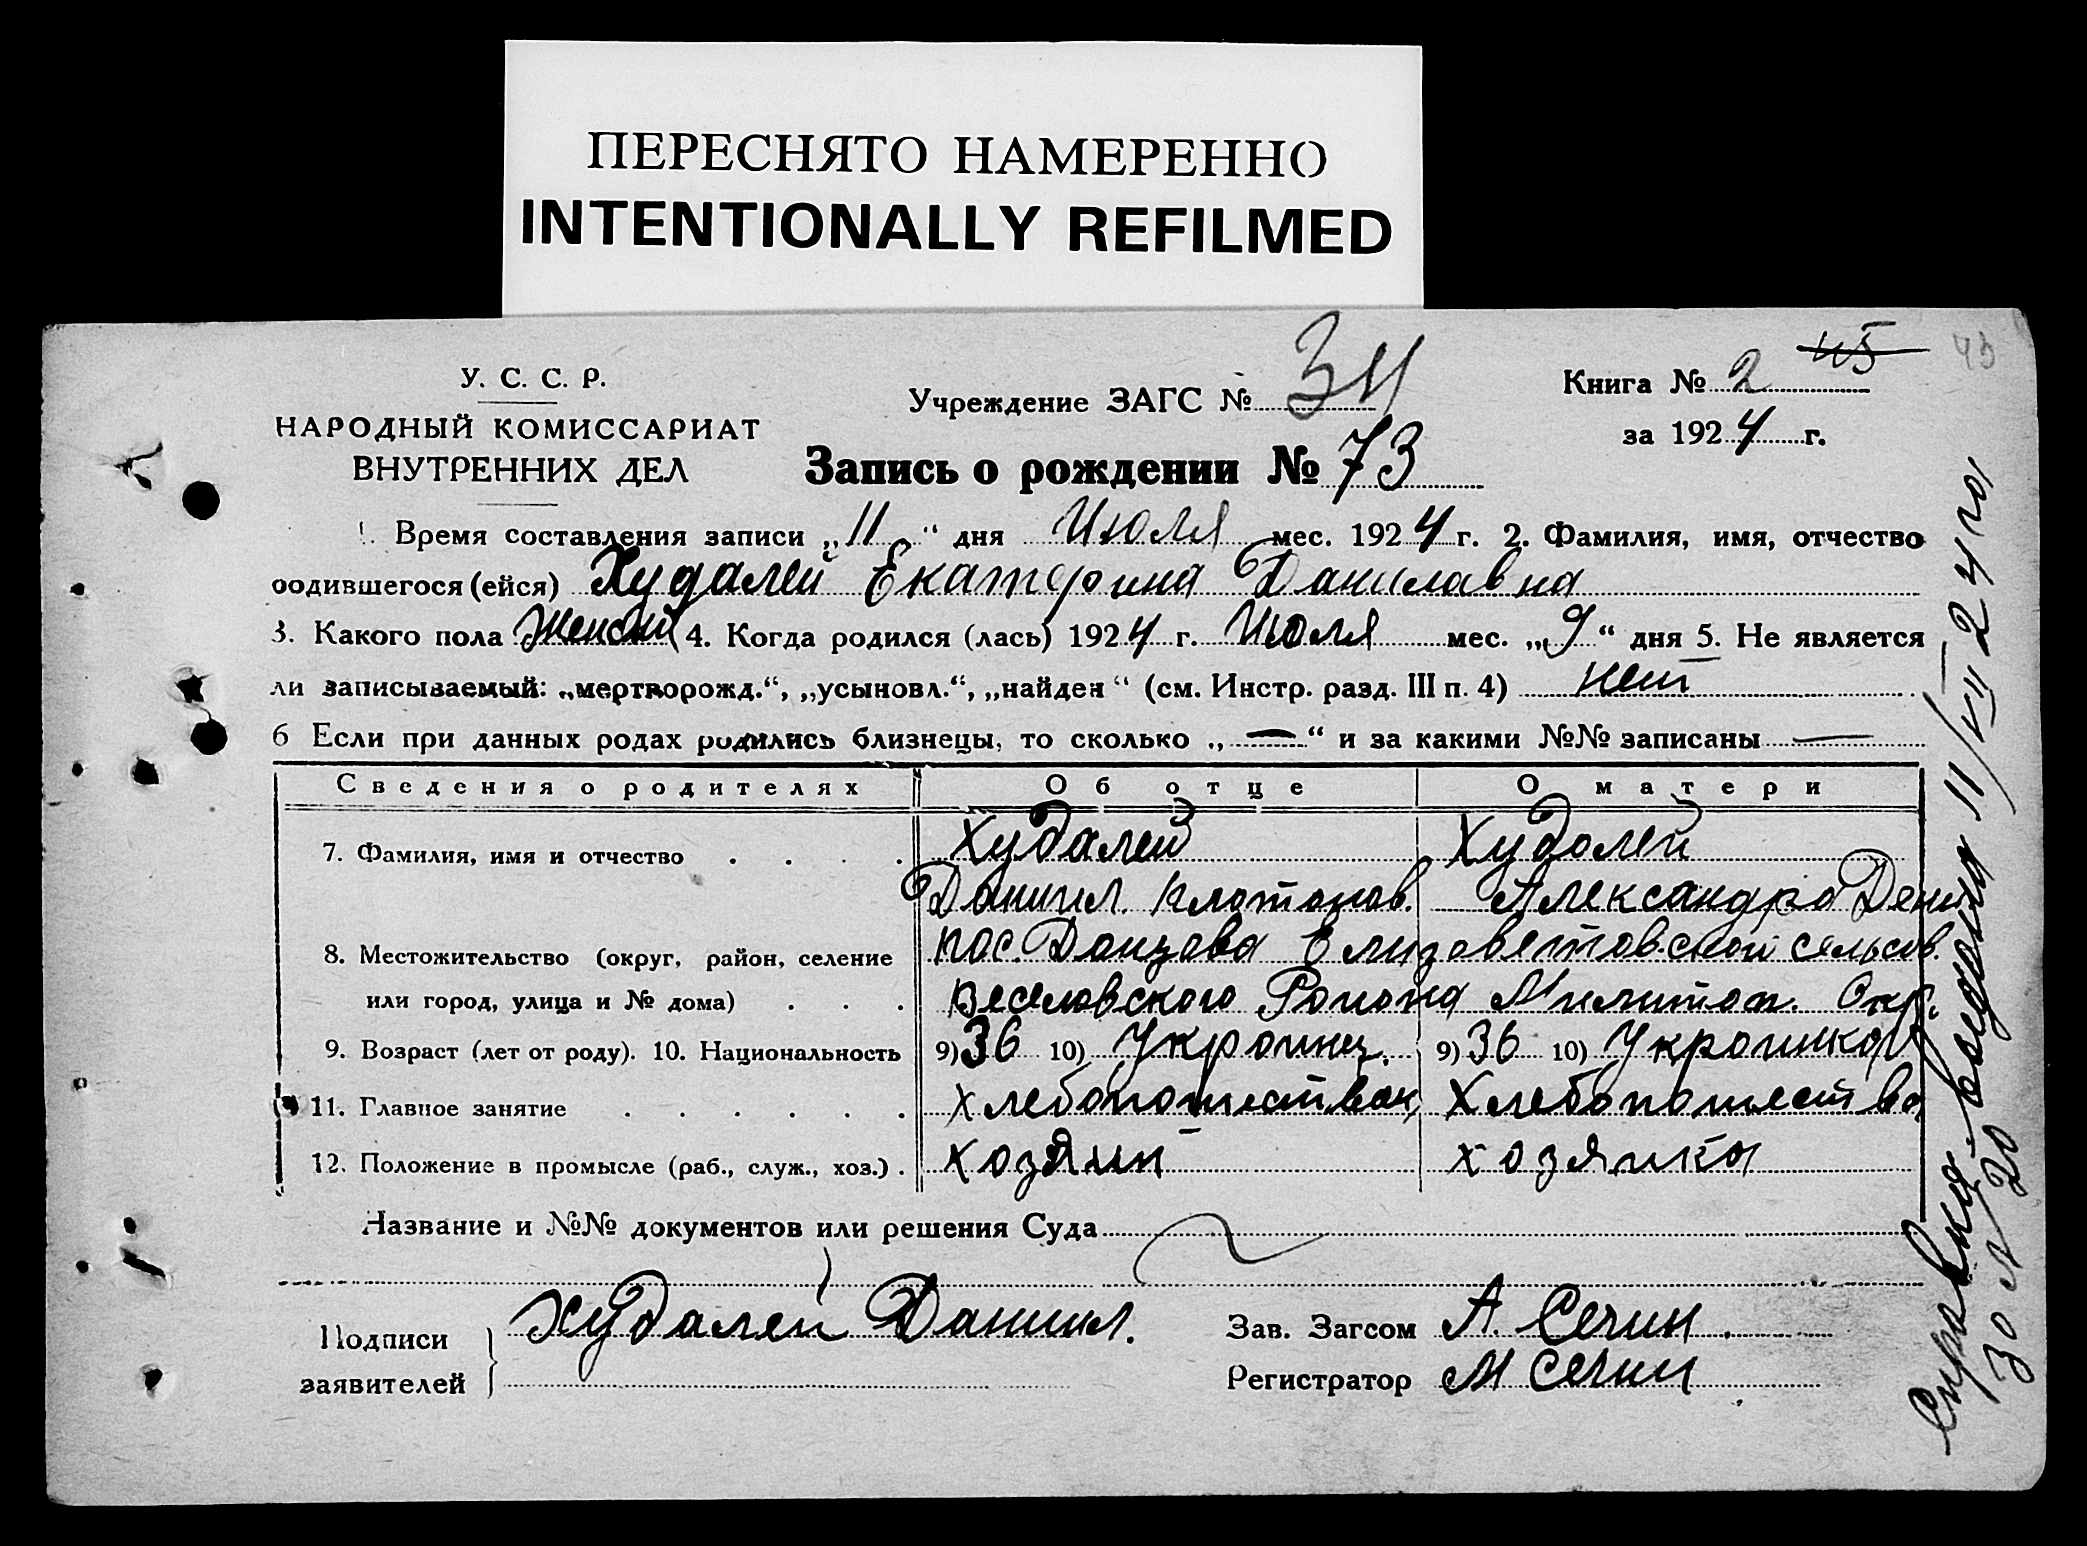 ПЕРЕСНЯТО НАМЕРЕННО
INTENTIONALLY REFILMED
У. С. С. Р.
НАРОДНЫЙ КОМИССАРИАТ
ВНУТРЕННИХ ДЕЛ
Учреждение ЗАГС №
Книга № 2 45
за 1924 г.
Запись о рождении № 73
1. Время составления записи „11“ дня Июля мес. 1924 г. 2. Фамилия, имя, отчество
родившегося (ейся) Худалей Екатерина Данилавна
3. Какого пола Женский 4. Когда родился (лась) 1924 г. Июля мес. „9“ дня 5. Не является
ли записываемый: „мертворожд.“, „усыновл.“, „найден“ (см. Инстр. разд. III п. 4) нет
6 Если при данных родах родились близнецы, то сколько „—“ и за какими №№ записаны —
Сведения о родителях Об отце О матери
7. Фамилия, имя и отчество Худалей Худолей
Данил Платонов. Александра Дени
8. Местожительство (округ, район, селение пос. Елизаветовской сельсов.
или город, улица и № дома) Веселовского Района Мелитоп. Окр.
9. Возраст (лет от роду). 10. Национальность 9) 36 10) Украинец. 9) 36 10) Украинка
11. Главное занятие Хлебопашество
12. Положение в промысле (раб., служ., хоз.) хозяин хозяйка
Название и №№ документов или решения Суда
Подписи
заявителей
Худалей Данил.
Зав. Загсом А. Сечин
Регистратор М Сечин
Справка выдана 11/VII 24 год
За № 20